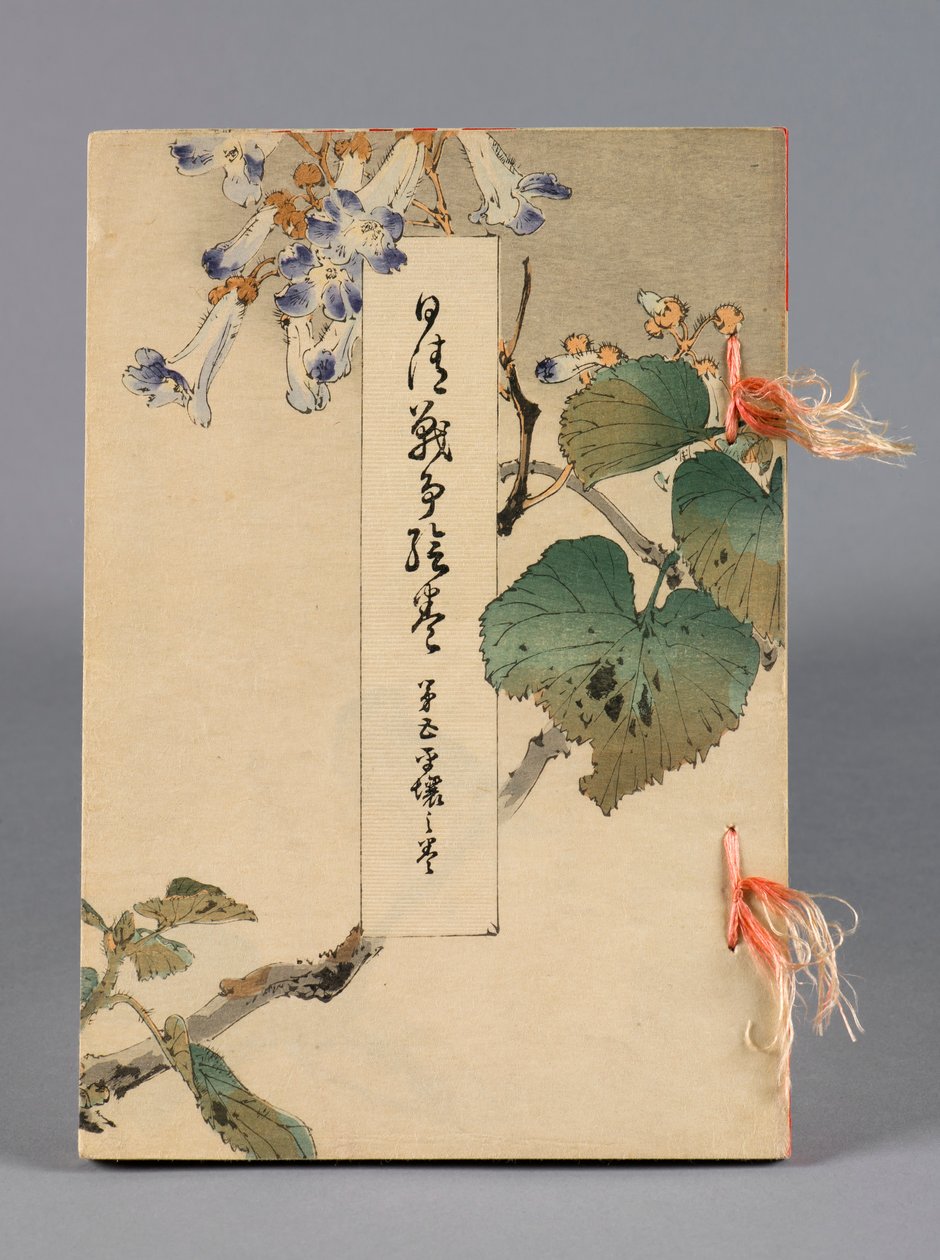 日清戦争絵巻 第五平壌之巻